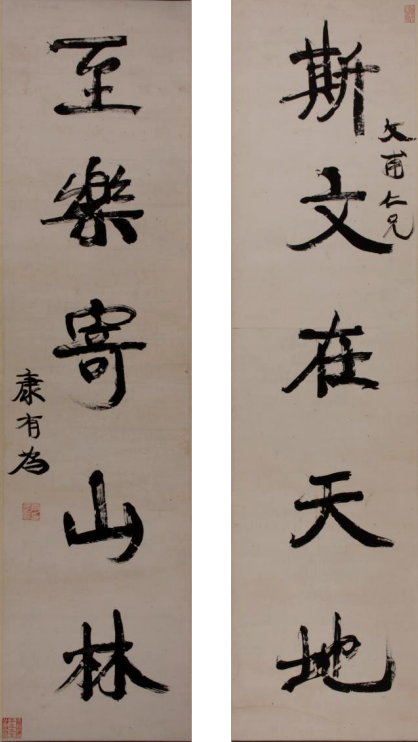 斯文在天地
文甫仁兄
至樂寄山林
康有為